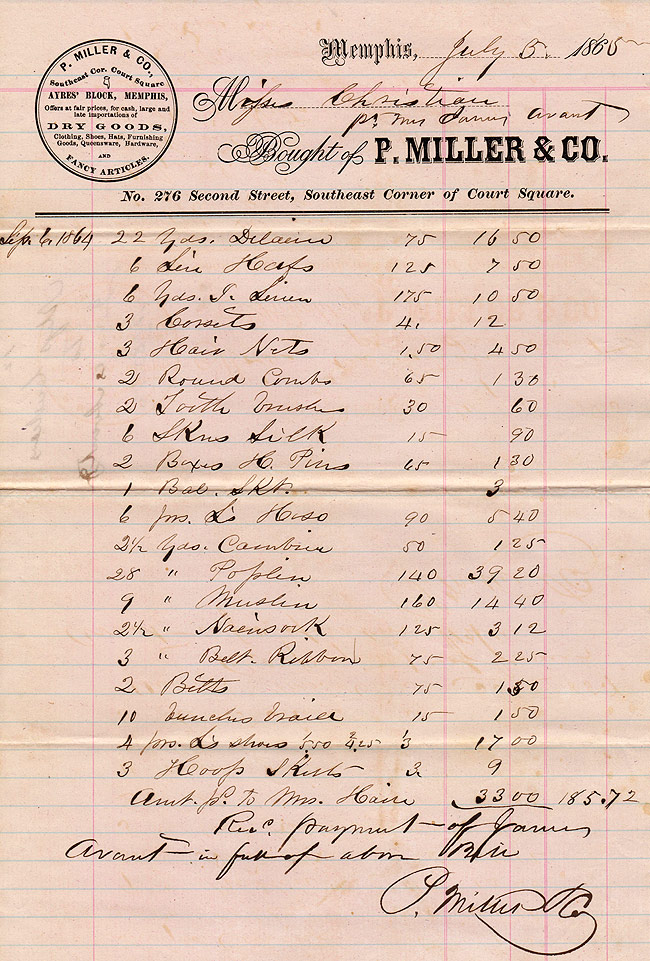 P. MILLER & CO.,
Southeast Cor. Court Square
AYRES' BLOCK, MEMPHIS,
Offers at fair prices, for cash, large and
late importations of
DRY GOODS,
Clothing, Shoes, Hats, Furnishing
Goods, Queensware, Hardware,
AND
FANCY ARTICLES.
Memphis, July 5. 1865
Misses Christian
pr Mr James Avant
Bought of P. MILLER & CO.
No. 276 Second Street, Southeast Corner of Court Square.
Sep. 6, 1864 22 Yds. Delaine 75 16 50
6 Lin Hdkfs 125 7 50
6 Yds. I. Linen 175 10 50
3 Corsets 4. 12
3 Hair Nets 1,50 4 50
2 Round Combs 65 1 30
2 Tooth brushes 30 60
6 Skns Silk 15 90
2 Boxes H. Pins 65 1 30
1 Bal. Skt. 3
6 prs. L's Hose 90 5 40
2½ Yds. Cambric 50 1 25
28 " Poplin 140 39 20
9 " Muslin 160 14 40
2½ " Nainsook 125 3 12
3 " Belt Ribbon 75 2 25
2 Belts 75 1 50
10 bunches braid 15 1 50
4 prs. L's shoes 1/5.50 2/4.25 1/3 17 00
3 Hoop Skirts 3. 9
Amt. pd. to Mrs. Hain 33 00 185.72
Recd. payment of James
Avant in full of above Bill
P. Miller & Co